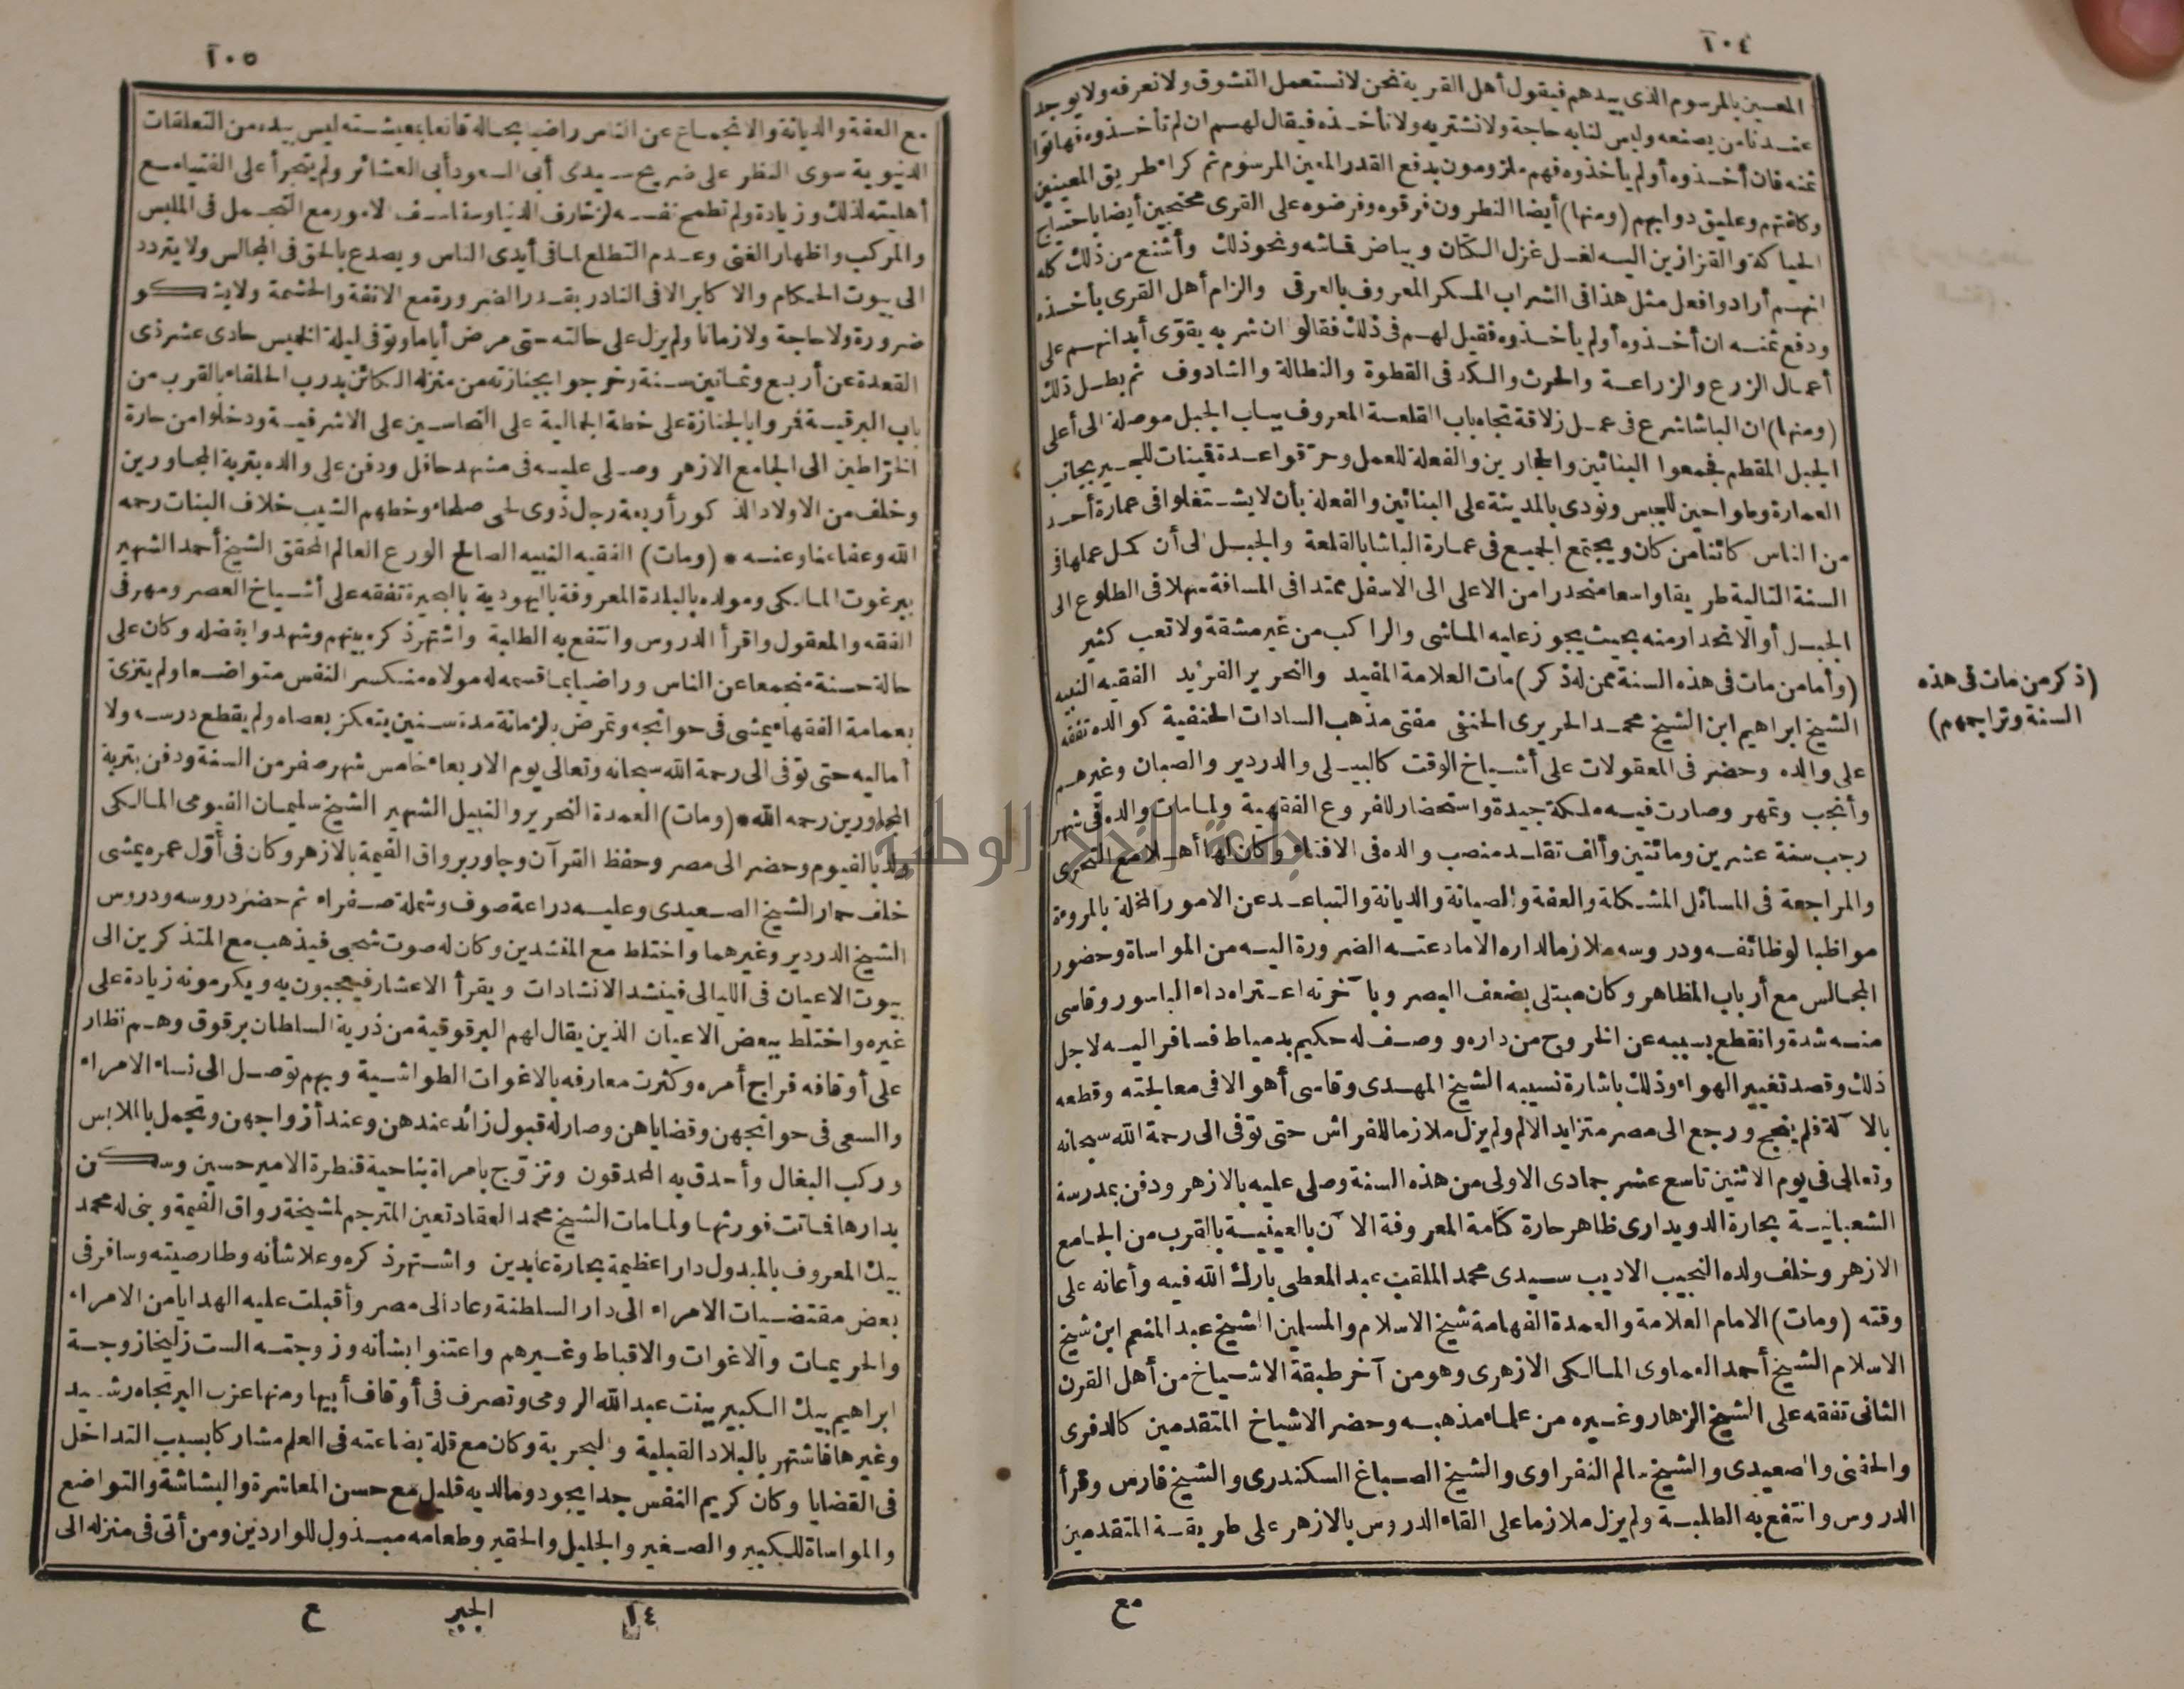 ١٠٤
المعينين بالمرسوم الذى بيدهم فيقول أهل القرية نحن لا نستعمل النشوق ولا نعرفه ولا يوجد
عندنا من يصنعه وليس لنا به حاجة ولا نشتريه ولا نأخذه فيقال لهم ان لم تأخذوه فهاتوا
ثمنه فان أخذوه أو لم يأخذوه فهم ملزومون بدفع القدر المعين المرسوم ثم كراء طريق المعينين
وكلفتهم وعليق دوابهم (ومنها) أيضا النطرون فرقوه وفرضوه على القرى محتجين أيضا باحتياج
الحياكة والقزازين اليه لغسل غزل الكتان وبياض قماشه ونحو ذلك وأشنع من ذلك كله
انهم أرادوا فعل مثل هذا فى الشراب المسكر المعروف بالعرقى والزام أهل القرى بأخذه
ودفع ثمنه ان أخذوه أو لم يأخذوه فقيل لهم فى ذلك فقالوا ان شربه يقوّى أبدانهم على
أعمال الزرع والزراعة والحرث والكد فى القطوة والنطالة والشادوف ثم بطل ذلك
(ومنها) ان الباشا شرع فى عمل زلاقة تجاه باب القلعة المعروف بباب الجبل موصلة الى أعلى
الجبل المقطم فجمعوا البنائين والحجارين والفعلة للعمل وحرّقوا عدة قينات للجير بجانب
العمارة وطواحين للجبس ونودى بالمدينة على البنائين والفعلة بأن لا يشتغلوا فى عمارة أحد
من الناس كائنا من كان ويجتمع الجميع فى عمارة الباشا بالقلعة والجبل الى أن كمل عملها فى
السنة التالية طريقا واسعا منحدرا من الاعلى الى الاسفل ممتدا فى المسافة سهلا فى الطلوع الى
الجبل أو الانحدار منه بحيث يجوز عليه الماشى والراكب من غير مشقة ولا تعب كثير
(وأما من مات فى هذه السنة ممن له ذكر) مات العلامة المفيد والنحرير الفريد الفقيه النبيه
الشيخ ابراهيم ابن الشيخ محمد الحريرى الحنفى مفتى مذهب السادات الحنفية كوالده تفقه
على والده وحضر فى المعقولات على أشياخ الوقت كالبيلى والدردير والصبان وغيرهم
وأنجب وتمهر وصارت فيه ملكة جيدة واستحضار للفروع الفقهية ولما مات والده فى شهر
رجب سنة عشرين ومائتين وألف تقلد منصب والده فى الافتاء وكان لها أهلا مع التحرى
والمراجعة فى المسائل المشكلة والعفة والصيانة والديانة والتباعد عن الامور المخلة بالمروءة
مواظبا لوظائفه ودروسه ملازما لداره الا ما دعته الضرورة اليه من المواساة وحضور
المجالس مع أرباب المظاهر وكان مبتلى بضعف البصر وبآخرته اعتراه داء الباسور وقاسى
منه شدة وانقطع بسببه عن الخروج من داره ووصف له حكيم بدمياط فسافر اليه لاجل
ذلك وقصد تغيير الهواء وذلك باشارة نسيبه الشيخ المهدى وقاسى أهوالا فى معالجته وقطعه
بالآلة فلم ينجح ورجع الى مصر متزايد الالم ولم يزل ملازما للفراش حتى توفى الى رحمة الله سبحانه
وتعالى فى يوم الاثنين تاسع عشر جمادى الاولى من هذه السنة وصلى عليه بالازهر ودفن بمدرسة
الشعبانية بحارة الدويدارى ظاهر حارة كتامة المعروفة الآن بالعينية بالقرب من الجامع
الازهر وخلف ولده النجيب الاديب سيدى محمد الملقب عبد المعطى بارك الله فيه وأعانه على
وقته (ومات) الامام العلامة والعمدة الفهامة شيخ الاسلام والمسلمين الشيخ عبد المنعم ابن شيخ
الاسلام الشيخ أحمد العماوى المالكى الازهرى وهو من آخر طبقة الاشياخ من أهل القرن
الثانى تفقه على الشيخ الزهار وغيره من علماء مذهبه وحضر الاشياخ المتقدمين كالدفرى
والحفنى والصعيدى والشيخ سالم النفراوى والشيخ الصباغ السكندرى والشيخ فارس وقرأ
الدروس وانتفع به الطلبة ولم يزل ملازما على القاء الدروس بالازهر على طريقة المتقدمين
مع
(ذكر من مات فى هذه
السنة وتراجمهم)
١٠٥
مع العفة والديانة والانجماع عن الناس راضيا بحاله قانعا بمعيشته ليس بيده من التعلقات
الدنيوية سوى النظر على ضريح سيدى أبى السعود أبى العشائر ولم يتجرأ على الفتيا مع
أهليته لذلك وزيادة ولم تطمح نفسه لزخارف الدنيا وسفاسف الامور مع التجمل فى الملبس
والمركب واظهار الغنى وعدم التطلع لما فى أيدى الناس ويصدع بالحق فى المجالس ولا يتردد
الى بيوت الحكام والاكابر الا فى النادر بقدر الضرورة مع الانفة والحشمة ولا يشكو
ضرورة ولا حاجة ولا زمانا ولم يزل على حالته حتى مرض أياما وتوفى ليلة الخميس حادى عشر ذى
القعدة عن أربع وثمانين سنة وخرجوا بجنازته من منزله الكائن بدرب الحلفاء بالقرب من
باب البرقية فمروا بالجنازة على خطة الجمالية على النحاسين على الاشرفية ودخلوا من حارة
الخراطين الى الجامع الازهر وصلى عليه فى مشهد حافل ودفن على والده بتربة المجاورين
وخلف من الاولاد الذكور أربعة رجال ذوى لحى صلحاء وخطهم الشيب خلاف البنات رحمه
الله وعفا عنا وعنه * (ومات) الفقيه النبيه الصالح الورع العالم المحقق الشيخ أحمد الشهير
ببرغوت المالكى ومولده بالبلدة المعروفة باليهودية بالبحيرة تفقه على أشياخ العصر ومهر فى
الفقه والمعقول واقرأ الدروس وانتفع به الطلبة واشتهر ذكره بينهم وشهدوا بفضله وكان على
حالة حسنة منجمعا عن الناس وراضيا بما قسمه له مولاه منكسر النفس متواضعا ولم يتزى
بعمامة الفقهاء يمشى فى حوائجه وتمرض بالزمانة مدة سنين يتعكز بعصاه ولم يقطع درسه ولا
أماليه حتى توفى الى رحمة الله سبحانه وتعالى يوم الاربعاء خامس شهر صفر من السنة ودفن بتربة
المجاورين رحمه الله * (ومات) العمدة النحرير والنبيل الشهير الشيخ سليمان الفيومى المالكى
ولد بالفيوم وحضر الى مصر وحفظ القرآن وجاور برواق الفيمة بالازهر وكان فى أوّل عمره يمشى
خلف حمار الشيخ الصعيدى وعليه دراعة صوف وشملة صفراء ثم حضر دروسه ودروس
الشيخ الدردير وغيرهما واختلط مع المنشدين وكان له صوت شجى فيذهب مع المتذكرين الى
بيوت الاعيان فى الليالى فينشد الانشادات ويقرأ الاعشار فيعجبون به ويكرمونه زيادة على
غيره واختلط ببعض الاعيان الذين يقال لهم البرقوقية من ذرية السلطان برقوق وهم نظار
على أوقافه فراج أمره وكثرت معارفه بالاغوات الطواشية وبهم توصل الى نساء الامراء
والسعى فى حوائجهن وقضاياهن وصار له قبول زائد عندهن وعند أزواجهن وتجمل بالملابس
وركب البغال وأحدق به المحدقون وتزوّج بامراة بناحية قنطرة الامير حسين وسكن
بدارها فماتت فورثها ولما مات الشيخ محمد العقاد تعين المترجم لمشيخة رواق الفيمة وبنى له محمد
بيك المعروف بالمبدول دارا عظيمة بحارة عابدين واشتهر ذكره وعلا شأنه وطار صيته وسافر فى
بعض مقتضيات الامراء الى دار السلطنة وعاد الى مصر وأقبلت عليه الهدايا من الامراء
والحريمات والاغوات والاقباط وغيرهم واعتنوا بشأنه وزوجته الست زليخا زوجة
ابراهيم بيك الكبير بنت عبد الله الرومى وتصرف فى أوقاف أبيها ومنها عزب البر تجاه رشيد
وغيرها فاشتهر بالبلاد القبلية والبحرية وكان مع قلة بضاعته فى العلم مشاركا بسبب التداخل
فى القضايا وكان كريم النفس جدا يجود وما لديه قليل مع حسن المعاشرة والبشاشة والتواضع
والمواساة للكبير والصغير والجليل والحقير وطعامه مبذول للواردين ومن أتى فى منزله الى
١٤
الجبر
ع
جامعة النجاح الوطنية